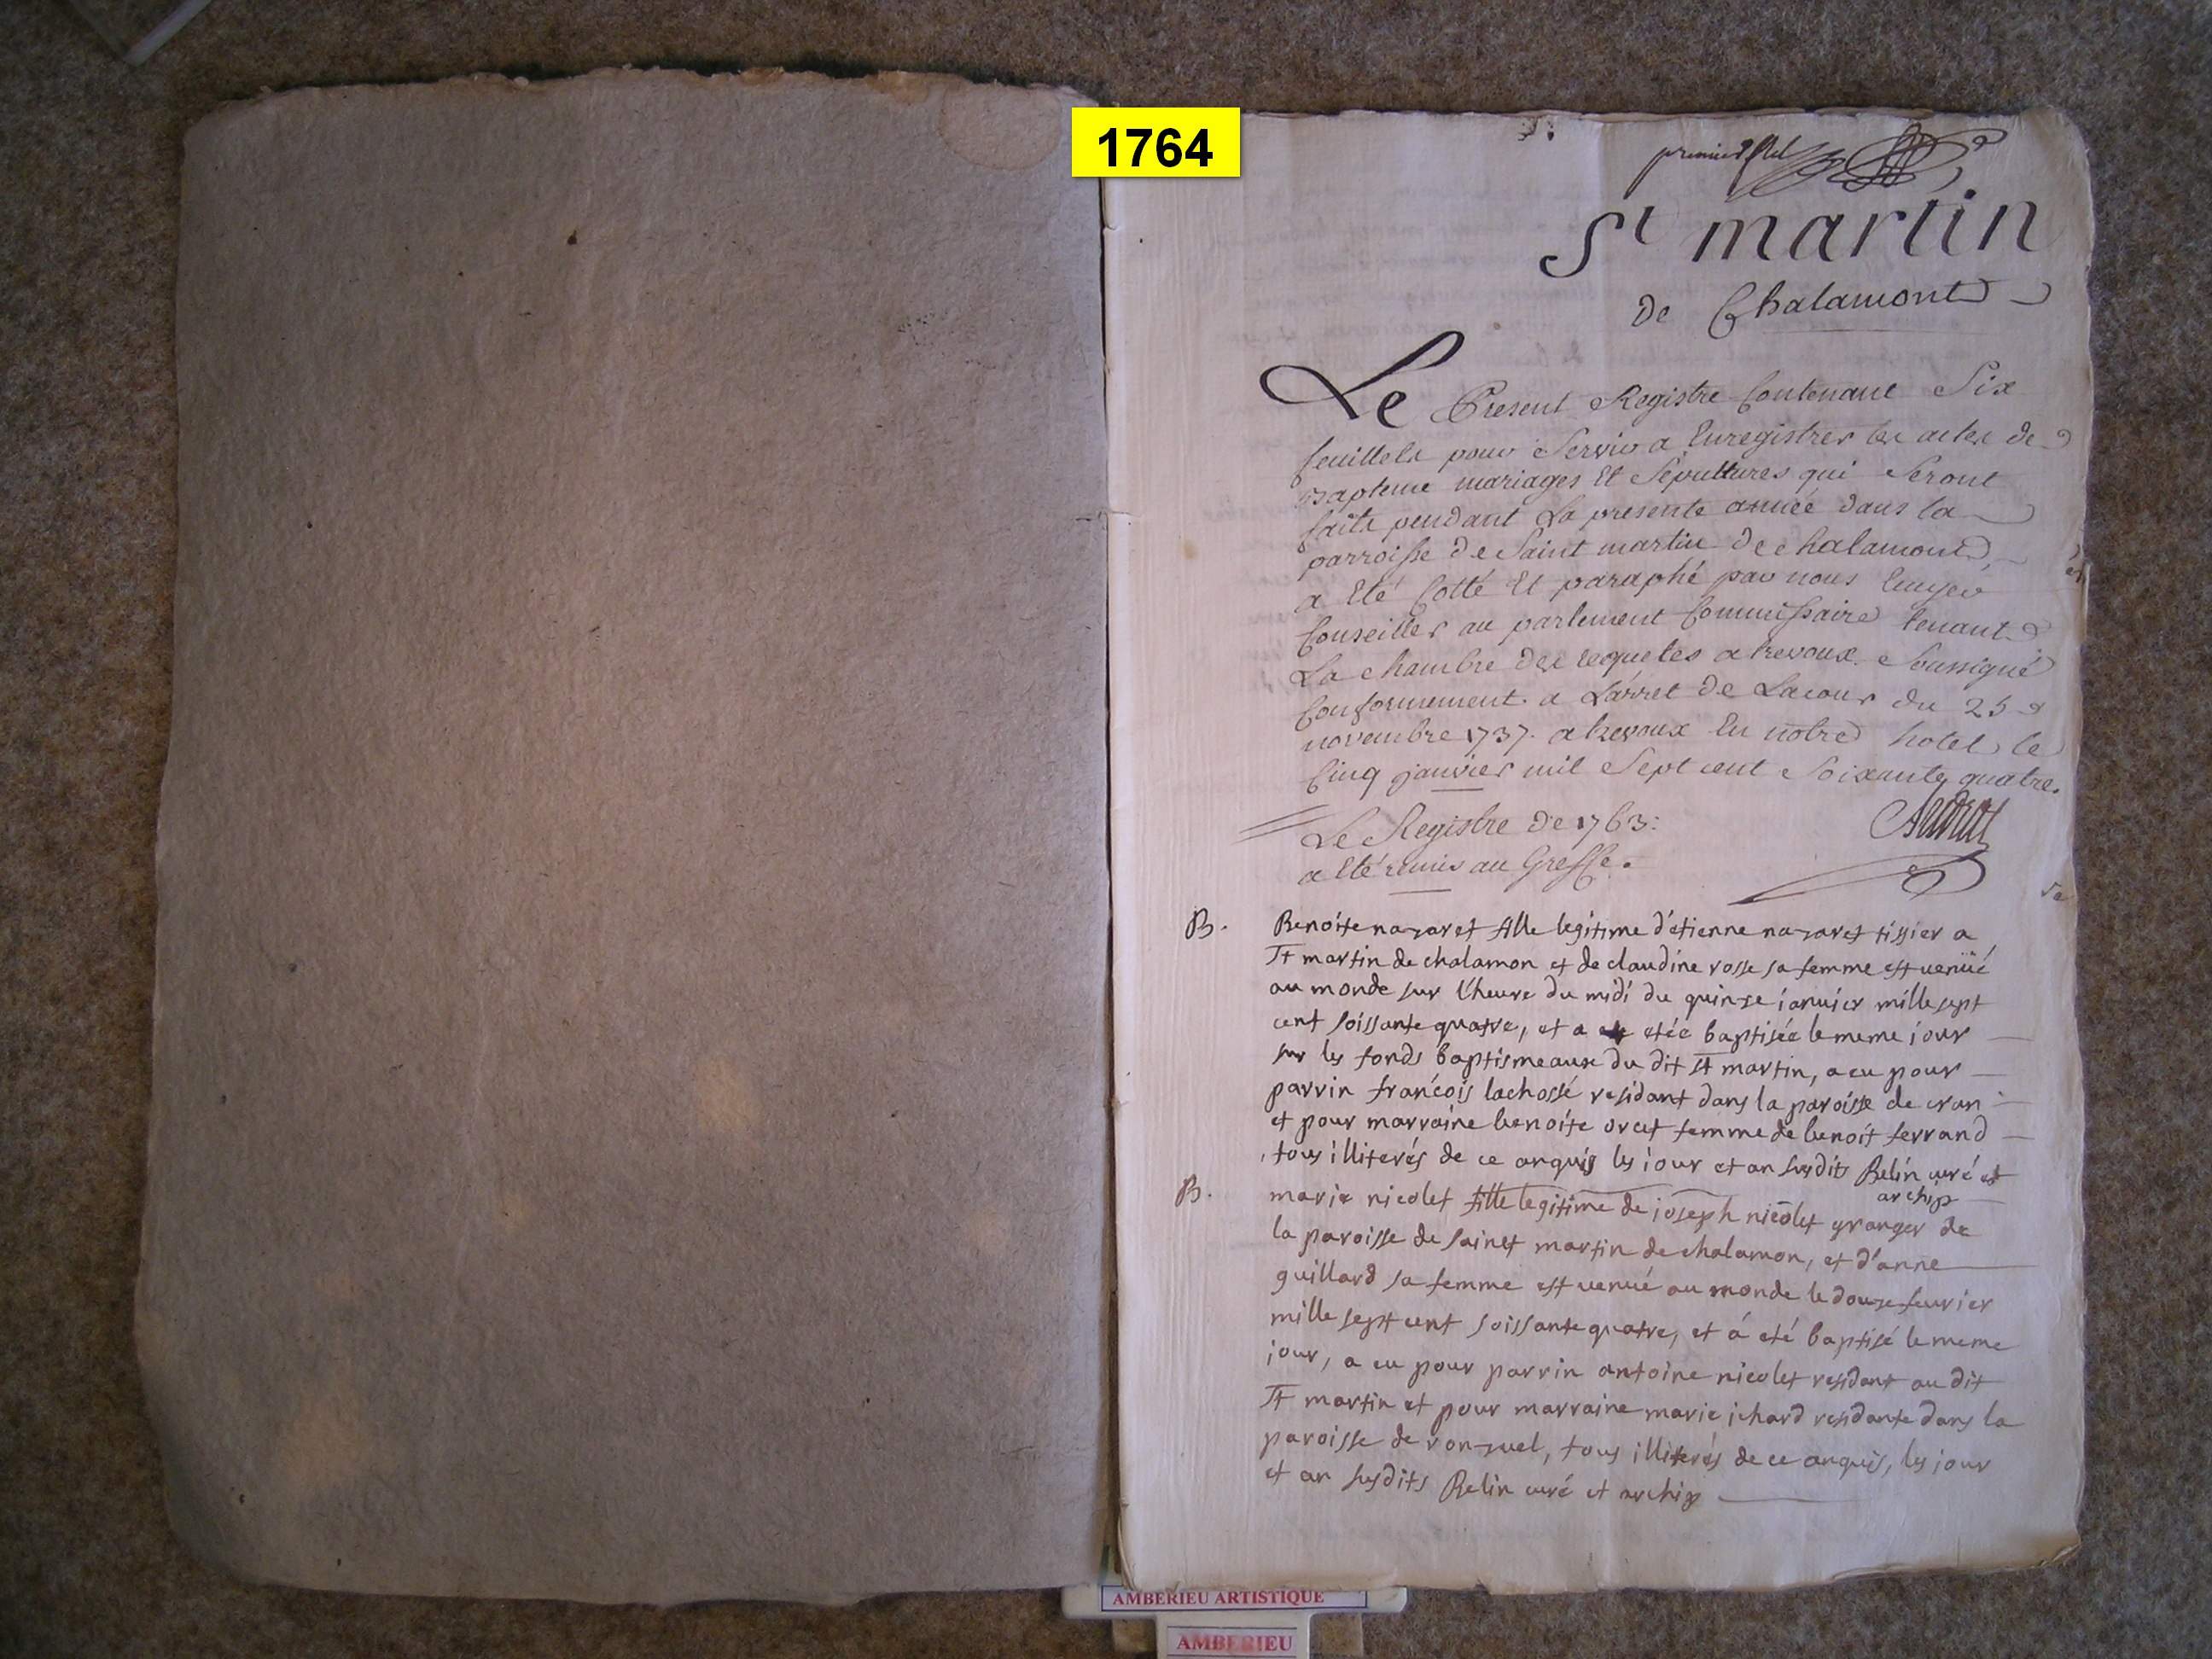 1764
premier
St martin
de Chalamont
Le Present Registre Contenant Six
feuillets pour Servir a Enregistrer les actes de
Bapteme mariages Et Sepultures qui Seront
faits pendant La presente année dans la
parroisse de Saint martin de chalamont,
a Eté Cotté Et paraphé par nous Ecuyer
Conseiller au parlement Commissaire tenant
La chambre des requetes a trevoux Soussigné
Conformement a L'arret de La cour du 25
novembre 1737. a trevoux En notre hotel le
Cinq janvier mil Sept cent Soixante quatre.
Le Registre de 1763:
a Eté remis au Greffe.
B. Benoite nazaret fille legitime d'étienne nazaret tissier a
St martin de chalamon et de claudine rosse sa femme est venüé
au monde sur l'heure du midi du quinze ianuier mille sept
cent soissante quatre, et a etéé baptisée le meme iour
sur les fonds baptismeaux du dit St martin, a eu pour
parrin françois lachossé residant dans la paroisse de cran
et pour marraine benoite orcet femme de benoit ferrand
tous illiterés de ce anquis les iour et an susdits Belin curé et
archip
B. marie nicolet fille legitime de ioseph nicolet granger de
la paroisse de sainct martin de chalamon, et d'anne
guillard sa femme est venué au monde le douze feurier
mille sept cent soissante quatre, et á eté baptisé le meme
iour, a eu pour parrin antoine nicolet residant au dit
St martin et pour marraine marie ichard residante dans la
paroisse de ronzuel, tous illiterés de ce anquis, les iour
et an susdits Belin curé et archip
AMBERIEU ARTISTIQUE
AMBERIEU